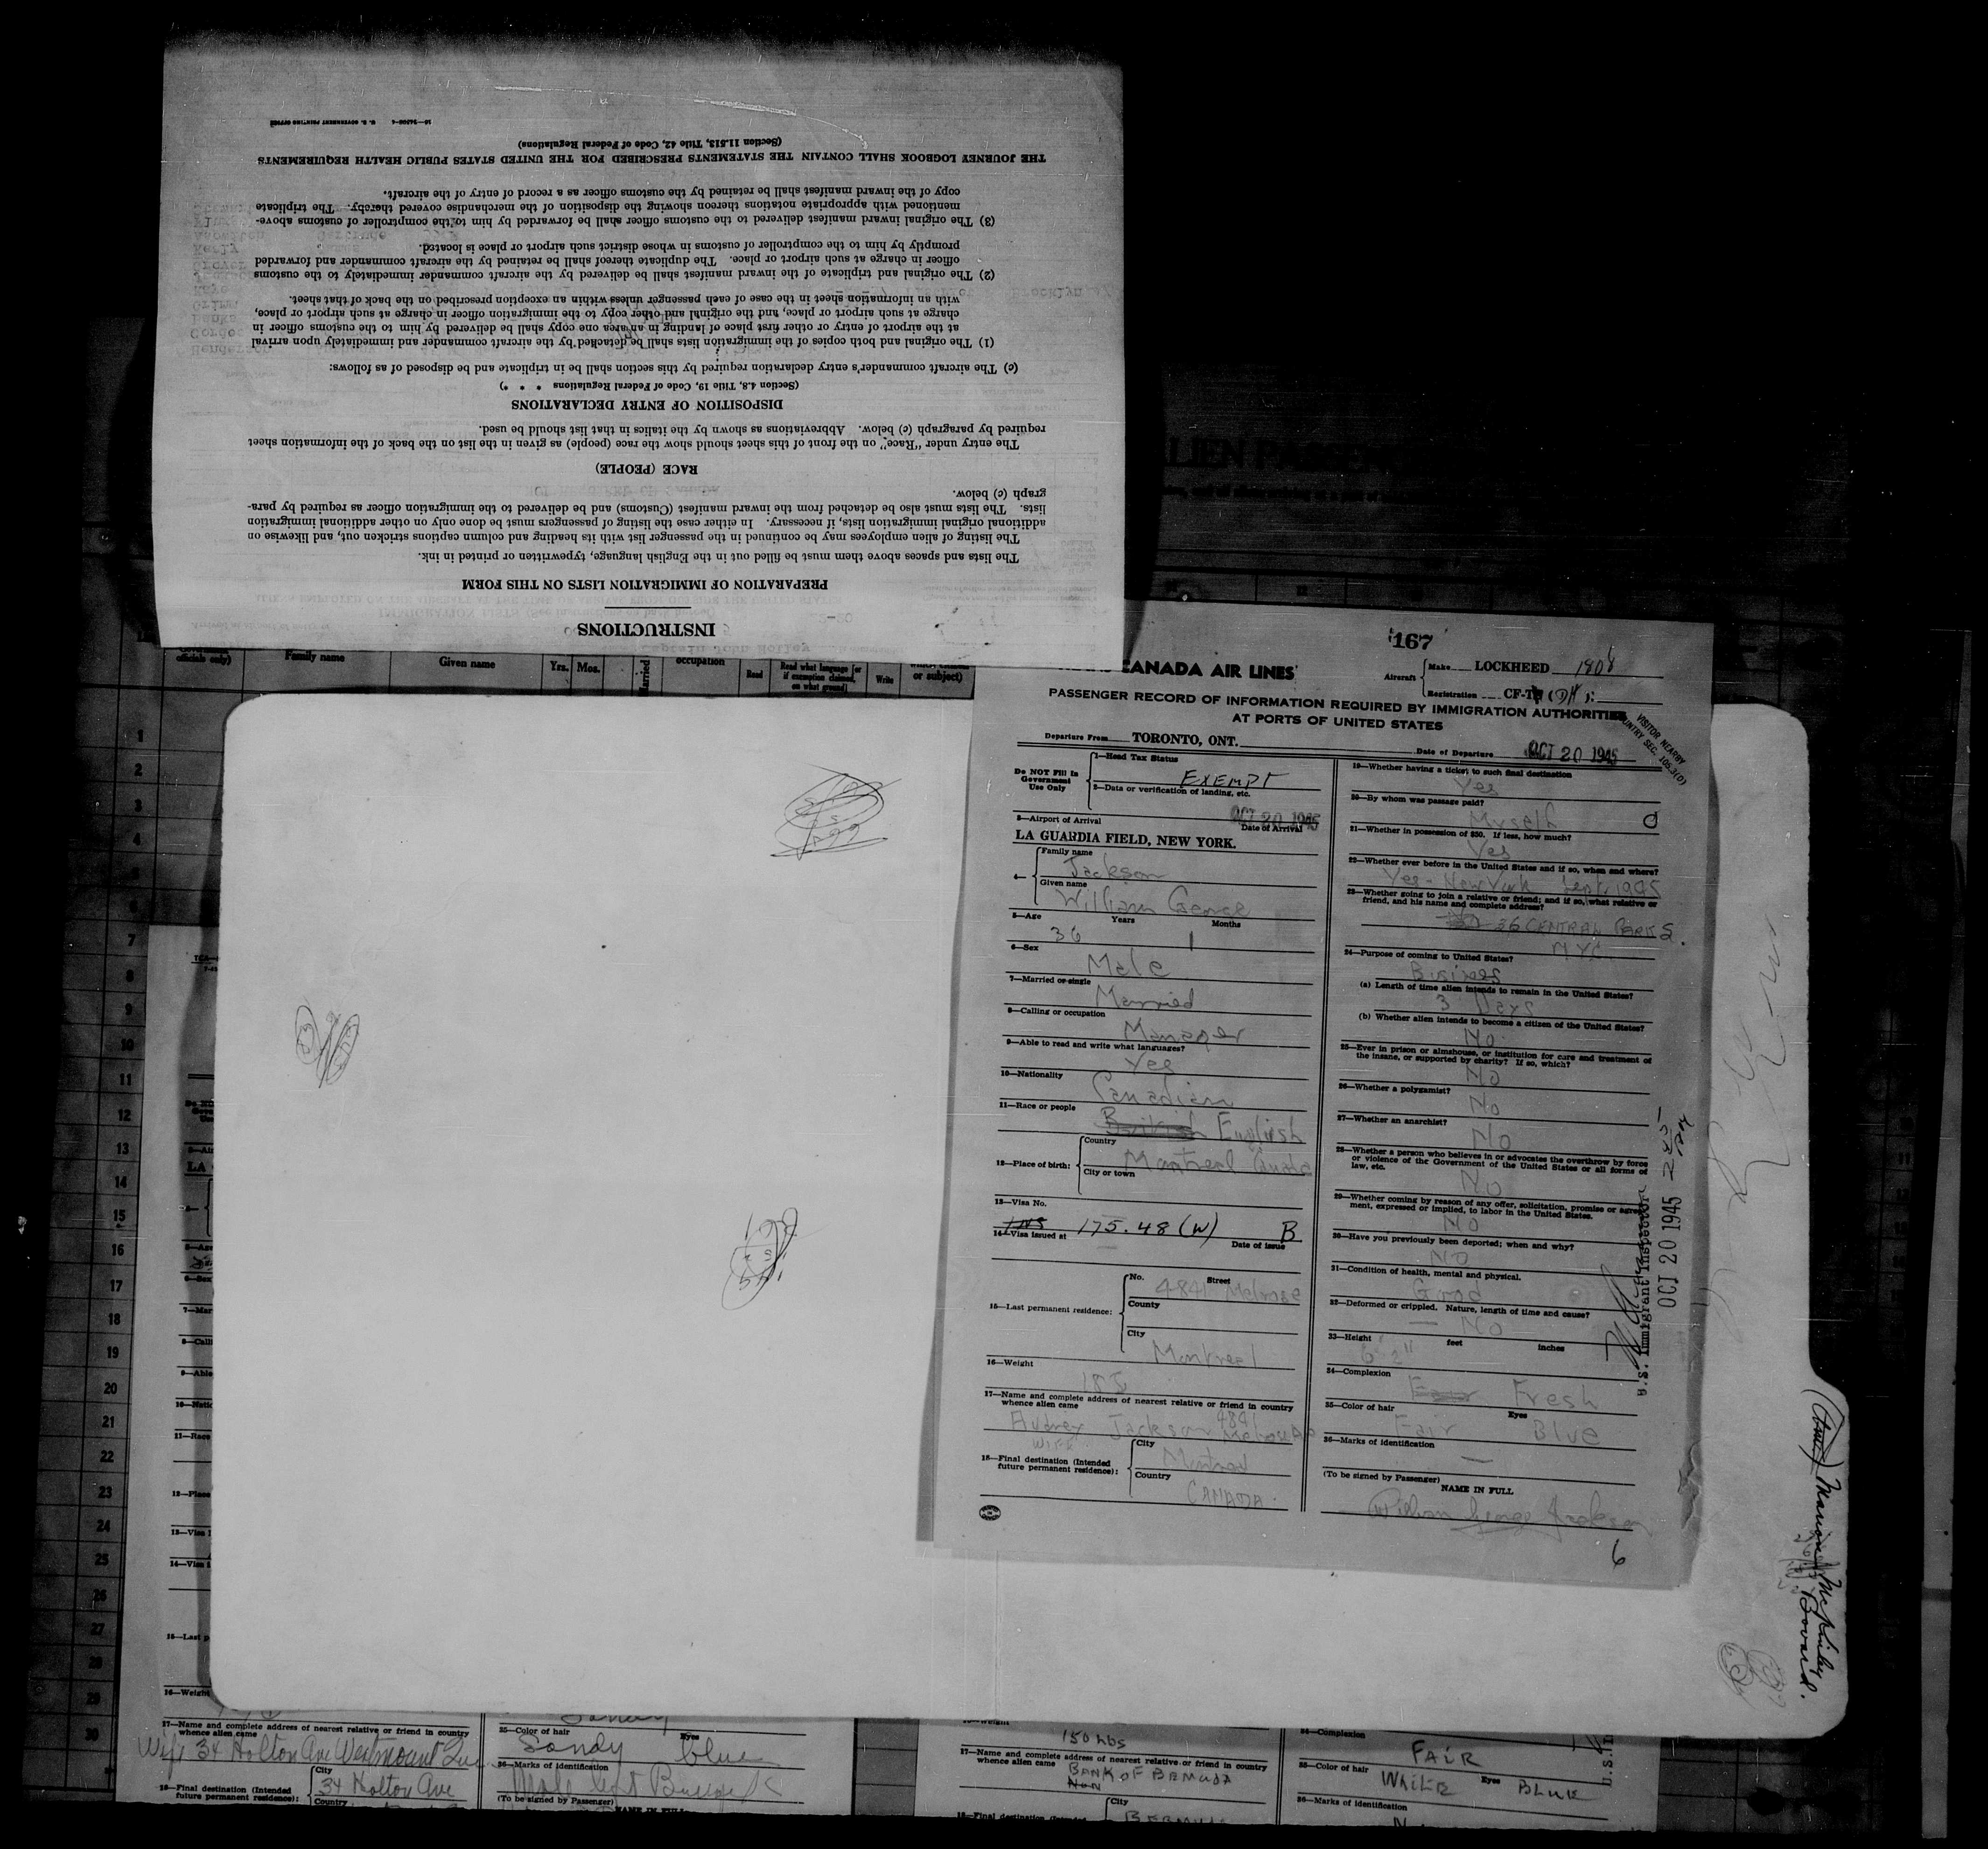 INSTRUCTIONS
PREPARATION OF IMMIGRATION LISTS ON THIS FORM
The lists and spaces above them must be filled out in the English language, typewritten or printed in ink.
The listing of alien employees may be continued in the passenger list with its heading and column captions stricken out, and likewise on
additional original immigration lists, if necessary. In either case the listing of passengers must be done only on other additional immigration
lists. The lists must also be detached from the inward manifest (Customs) and be delivered to the immigration officer as required by para-
graph (c) below.
RACE (PEOPLE)
The entry under "Race" on the front of this sheet should show the race (people) as given in the list on the back of the information sheet
required by paragraph (c) below. Abbreviations as shown by the italics in that list should be used.
DISPOSITION OF ENTRY DECLARATIONS
(Section 4.8, Title 19, Code of Federal Regulations * * *)
(c) The aircraft commander's entry declaration required by this section shall be in triplicate and be disposed of as follows:
(1) The original and both copies of the immigration lists shall be detached by the aircraft commander and immediately upon arrival
at the airport of entry or other first place of landing in an area one copy shall be delivered by him to the customs officer in
charge at such airport or place, and the original and other copy to the immigration officer in charge at such airport or place,
with an information sheet in the case of each passenger unless within an exception prescribed on the back of that sheet.
(2) The original and triplicate of the inward manifest shall be delivered by the aircraft commander immediately to the customs
officer in charge at such airport or place. The duplicate thereof shall be retained by the aircraft commander and forwarded
promptly by him to the comptroller of customs in whose district such airport or place is located.
(3) The original inward manifest delivered to the customs officer shall be forwarded by him to the comptroller of customs above-
mentioned with appropriate notations thereon showing the disposition of the merchandise covered thereby. The triplicate
copy of the inward manifest shall be retained by the customs officer as a record of entry of the aircraft.
THE JOURNEY LOGBOOK SHALL CONTAIN THE STATEMENTS PRESCRIBED FOR THE UNITED STATES PUBLIC HEALTH REQUIREMENTS
(Section 11.513, Title 42, Code of Federal Regulations)
U. S. GOVERNMENT PRINTING OFFICE
officials only)
Family name
Given name
Yrs. Mos.
occupation
Read
Read what language [or
if exemption claimed,
on what ground]
Write
or subject)
1
2
3
4
5
6
7
8
9
10
11
12
13
14
15
16
17
18
19
20
21
22
23
24
25
26
27
28
29
30
167
CANADA AIR LINES
Aircraft
Make LOCKHEED 1808
Registration CF-T
PASSENGER RECORD OF INFORMATION REQUIRED BY IMMIGRATION AUTHORITIES
AT PORTS OF UNITED STATES
VISITOR NEARBY
COUNTRY SEC. 105.3(D)
Departure From TORONTO, ONT.
Date of Departure OCT 20 1945
Do NOT Fill in
Government
Use Only
1—Head Tax Status
EXEMPT
2—Data or verification of landing, etc.
3—Airport of Arrival
OCT 20 1945
Date of Arrival
LA GUARDIA FIELD, NEW YORK.
4—
Family name
Jackson
Given name
William George
5—Age Years Months
36 1
6—Sex
Male
7—Married or single
Married
8—Calling or occupation
Manager
9—Able to read and write what languages?
Yes
10—Nationality
Canadian
11—Race or people
British English
12—Place of birth:
Country
Montreal Canada
City or town
13—Visa No.
INS 175.48 (W) B
14—Visa issued at Date of issue
15—Last permanent residence:
No. Street
4841 Melrose
County
City
Montreal
16—Weight
185
17—Name and complete address of nearest relative or friend in country
whence alien came
Audrey Jackson 4841 Melrose Av
WIFE
18—Final destination (Intended
future permanent residence):
City
Montreal
Country
CANADA.
19—Whether having a ticket to such final destination
Yes
20—By whom was passage paid?
Myself
21—Whether in possession of $50. If less, how much?
Yes
22—Whether ever before in the United States and if so, when and where?
Yes - New York Sept. 1945
23—Whether going to join a relative or friend; and if so, what relative or
friend, and his name and complete address?
36 CENTRAL PARK S.
NYC.
24—Purpose of coming to United States?
Business
(a) Length of time alien intends to remain in the United States?
3 Days
(b) Whether alien intends to become a citizen of the United States?
No.
25—Ever in prison or almshouse, or institution for care and treatment of
the insane, or supported by charity? If so, which?
No
26—Whether a polygamist?
No
27—Whether an anarchist?
No
28—Whether a person who believes in or advocates the overthrow by force
or violence of the Government of the United States or all forms of
law, etc.
No
29—Whether coming by reason of any offer, solicitation, promise or agree-
ment, expressed or implied, to labor in the United States.
No
30—Have you previously been deported; when and why?
No
31—Condition of health, mental and physical.
Good
32—Deformed or crippled. Nature, length of time and cause?
— No
33—Height feet inches
6' 2"
34—Complexion
Fresh
35—Color of hair Eyes
Fair Blue
36—Marks of identification
—
(To be signed by Passenger)
NAME IN FULL
William George Jackson
6
U.S. Immigrant Inspector
OCT 20 1945
16—Weight
17—Name and complete address of nearest relative or friend in country
whence alien came
Wife 34 Holton Ave Westmount Que
18—Final destination (Intended
future permanent residence):
City
34 Holton Ave
Country
35—Color of hair Eyes
Sandy blue
36—Marks of identification
(To be signed by Passenger)
NAME IN FULL
150 lbs
17—Name and complete address of nearest relative or friend in country
whence alien came
BANK OF BERMUDA
City
34—Complexion
FAIR
35—Color of hair Eyes
WHITE BLUE
36—Marks of identification